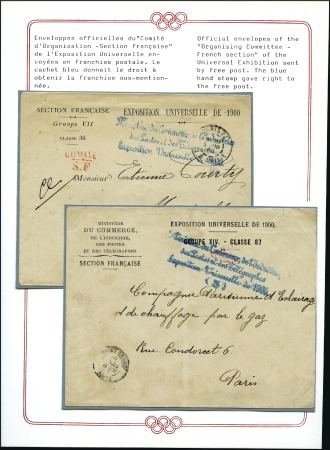 Enveloppes officielles du"Comité
d'Organisation -Section française"
de l'Exposition Universelle en-
voyées en franchise postale. Le
cachet bleu donnait le droit à
obtenir la franchise sus-mention-
née.
Official envelopes of the
"Organising Committee -
French section" of the
Universal Exhibition sent
by free post. The blue
hand stamp gave right to
the free post.
SECTION FRANÇAISE
Groupe VII
CLASSE 36
COMITÉ
S.F
EXPOSITION UNIVERSELLE DE 1900
Ministère du Commerce, de l'Industrie
des Postes et des Télégraphes
Exposition Universelle de 1900
Monsieur Etienne
MINISTÈRE
DU COMMERCE,
DE L'INDUSTRIE,
DES POSTES
ET DES TÉLÉGRAPHES
SECTION FRANÇAISE
EXPOSITION UNIVERSELLE DE 1900.
GROUPE XIV. - CLASSE 87
Ministère du Commerce, de l'Industrie,
des Postes et des Télégraphes
Exposition Universelle de 1900
(3)
Compagnie Parisienne d'Eclairage
et de chauffage par le gaz
Rue Condorcet 6
Paris